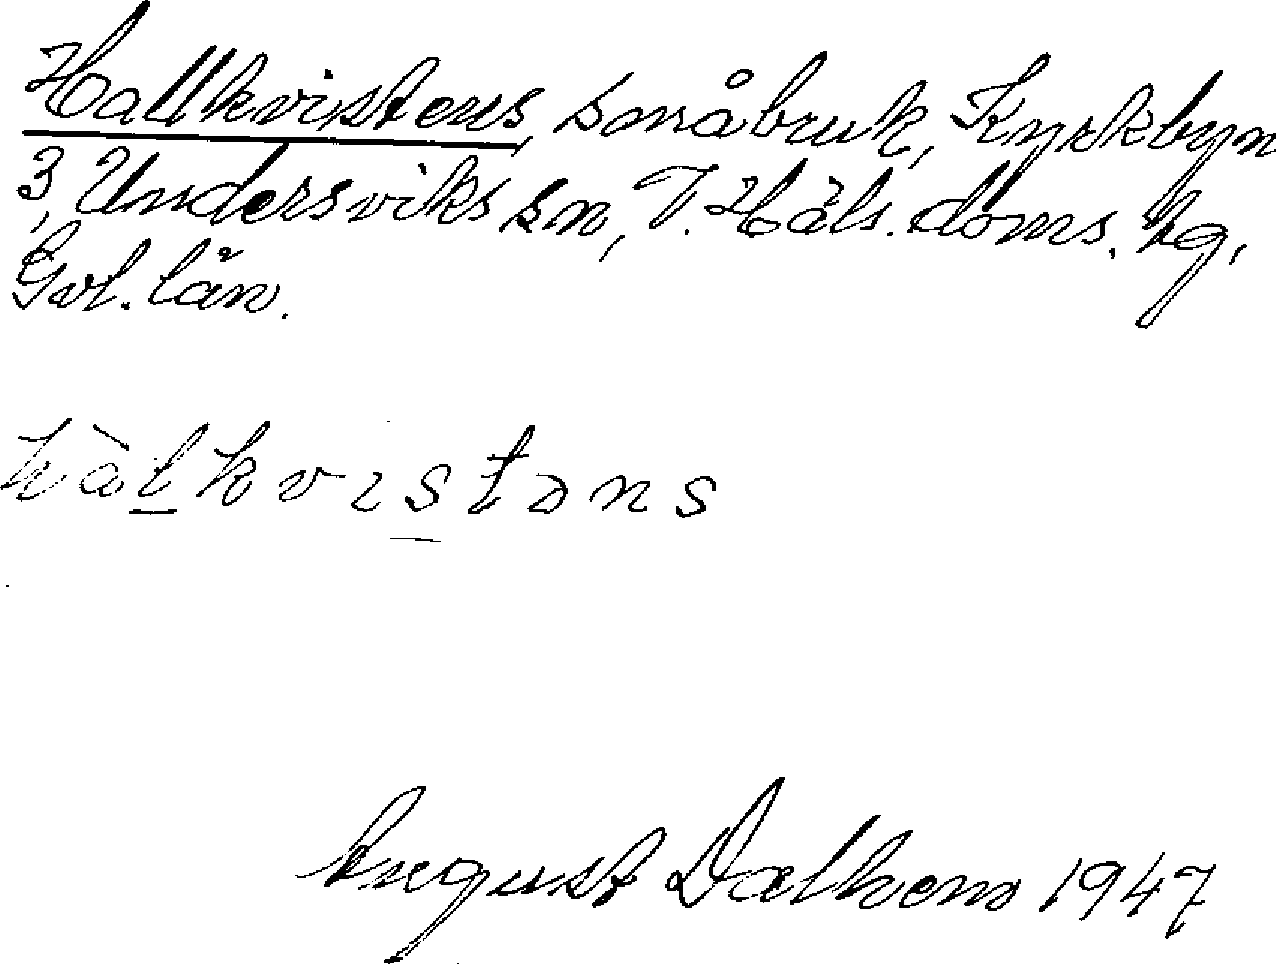 Hallkvistens, småbruk, Kyrkbyn
3, Undersviks sn, V. Häls. doms. hg,
Gvl. län.
hàlkvistəns
August Dalhem 1947